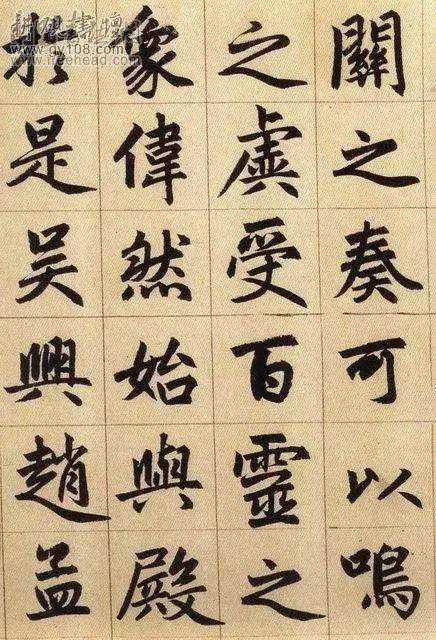 關之奏可以鳴
之虡受百靈之
象偉然始與殿
於是吳興趙孟
www.freehead.com